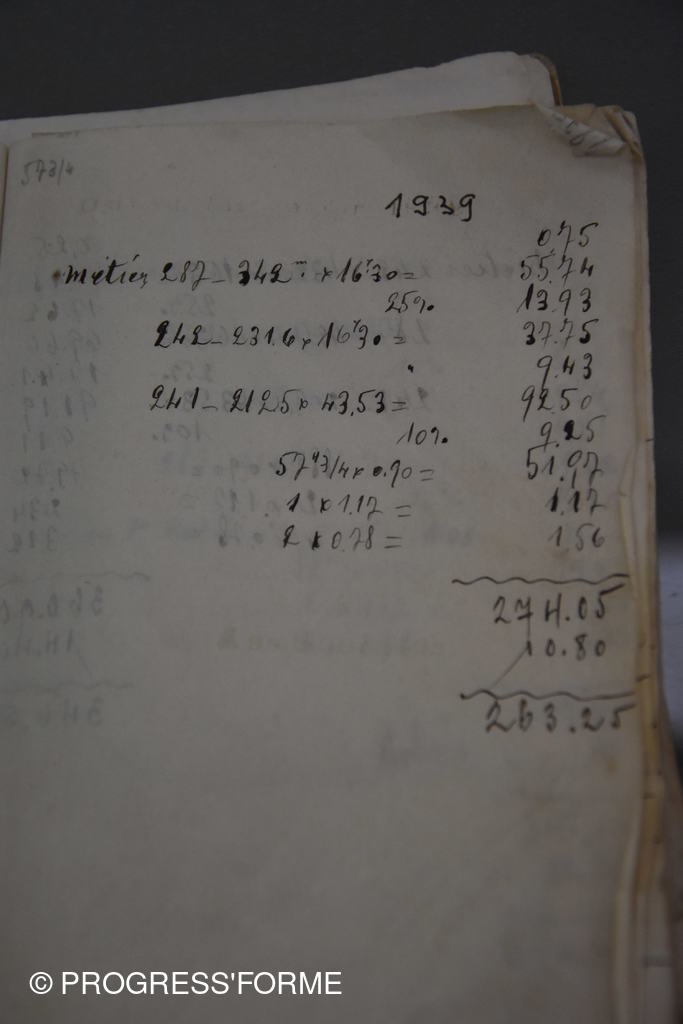 573/4
1939
075
Métier 287 - 342m × 16f30 = 55.74
25% 13.93
242 - 231.6 × 16f30 = 37.75
" 9.43
241 - 2125 × 43,53 = 92 50
10% 9.25
57h3/4 × 0.90 = 51.97
1 × 1.17 = 1.17
2 × 0.78 = 1.56
274.05
10.80
263.25
© PROGRESS'FORME